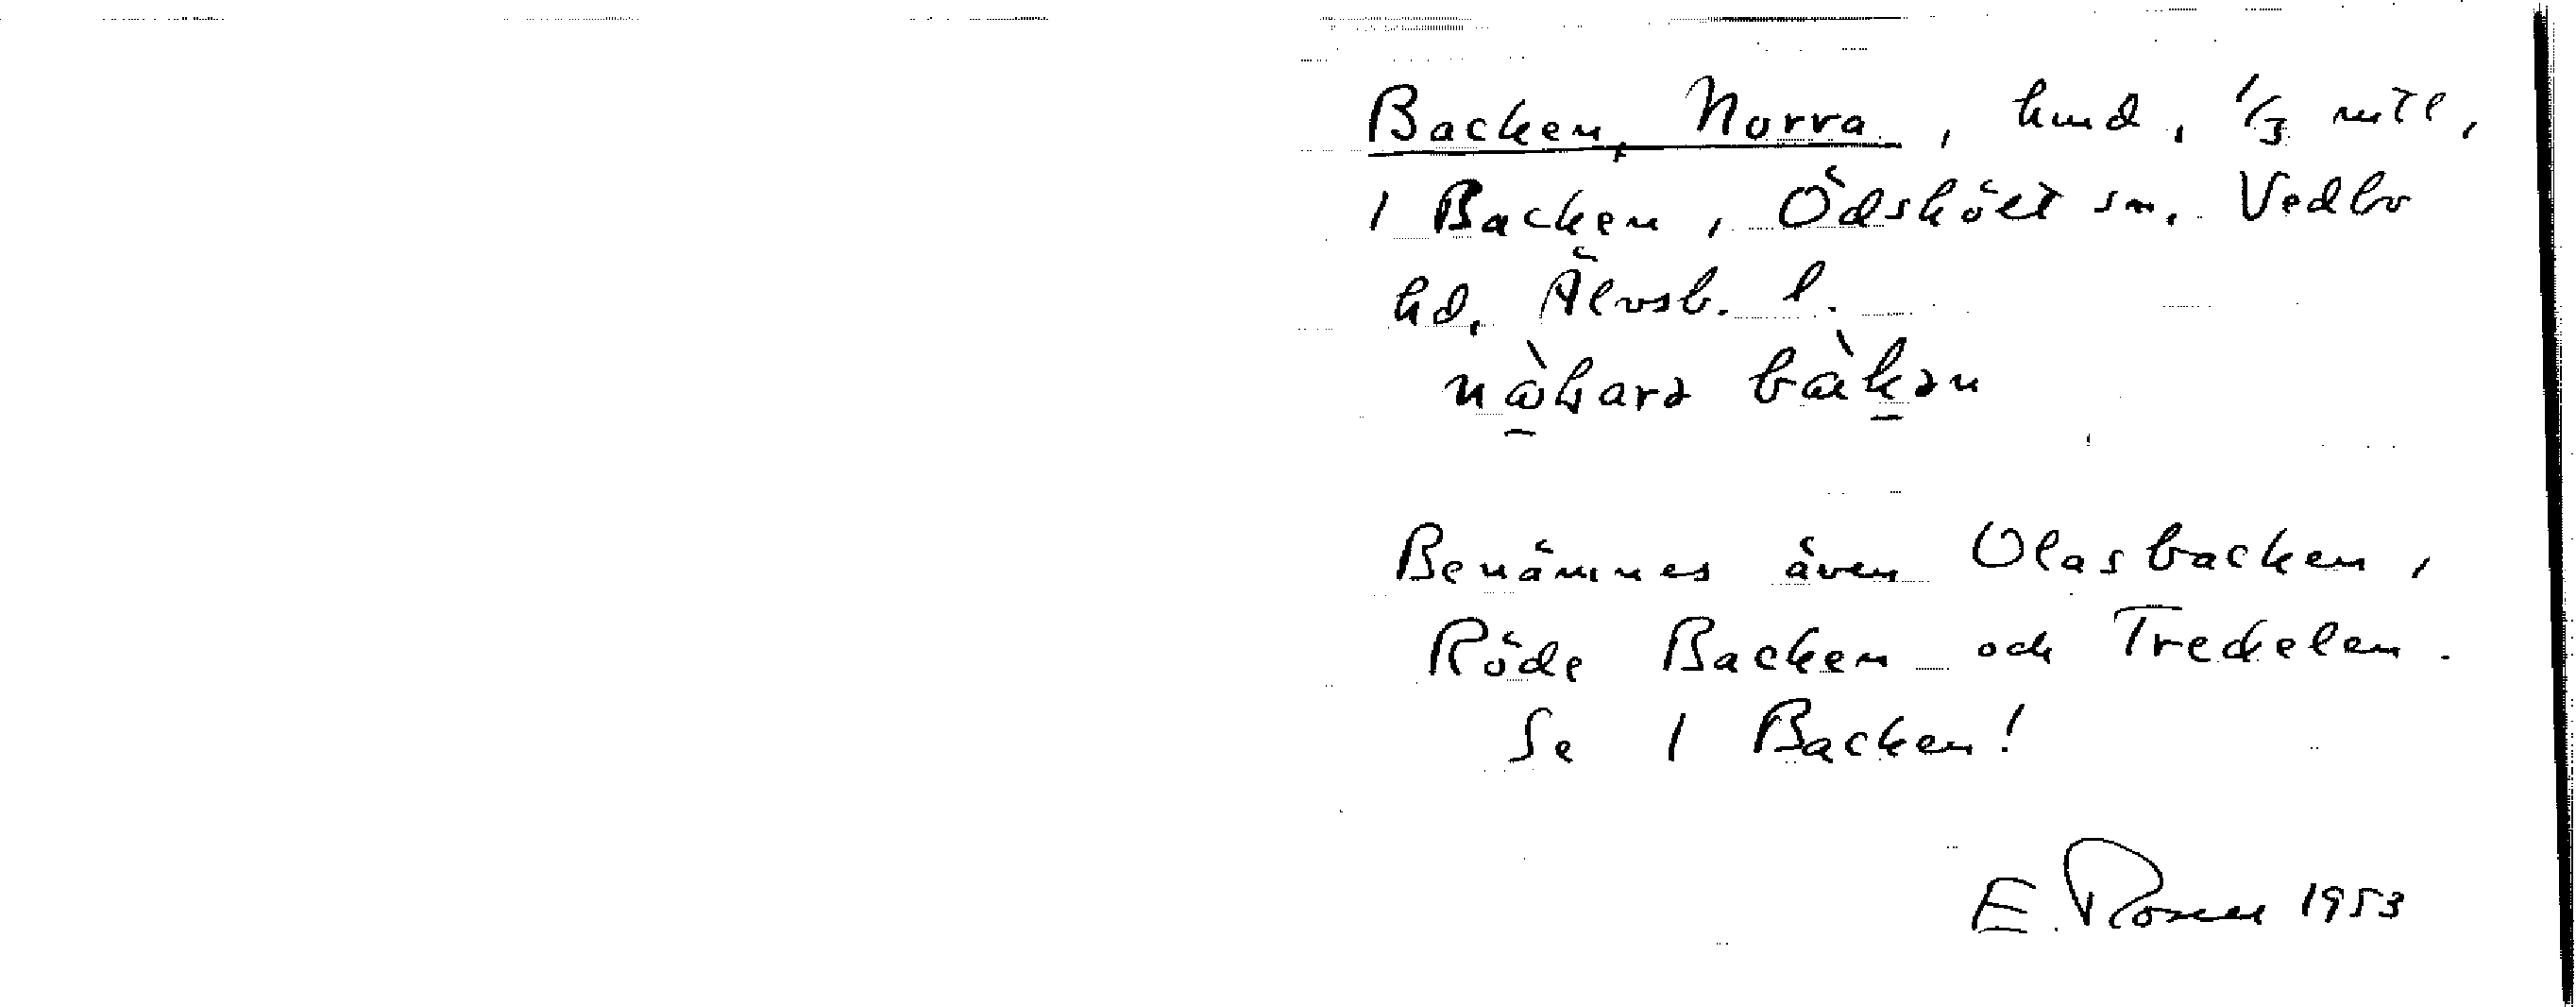 Backen, Norra, hmd, 1/3 mtl,
1 Backen, Ödskölt sn. Vedbo
hd, Älvsb. l.
Benämnes även Olasbacken,
Röde Backen och Tredelen.
Se 1 Backen!
E. Rosell 1953